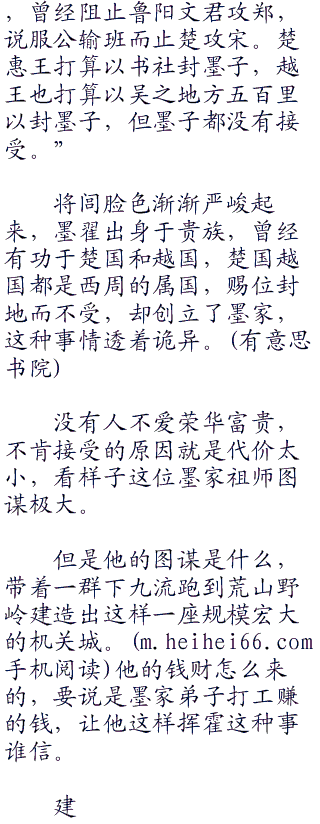 ，曾经阻止鲁阳文君攻郑，
说服公输班而止楚攻宋。楚
惠王打算以书社封墨子，越
王也打算以吴之地方五百里
以封墨子，但墨子都没有接
受。”
将闾脸色渐渐严峻起
来，墨翟出身于贵族，曾经
有功于楚国和越国，楚国越
国都是西周的属国，赐位封
地而不受，却创立了墨家，
这种事情透着诡异。(有意思
书院)
没有人不爱荣华富贵，
不肯接受的原因就是代价太
小，看样子这位墨家祖师图
谋极大。
但是他的图谋是什么，
带着一群下九流跑到荒山野
岭建造出这样一座规模宏大
的机关城。(m.heihei66.com
手机阅读)他的钱财怎么来
的，要说是墨家弟子打工赚
的钱，让他这样挥霍这种事
谁信。
建